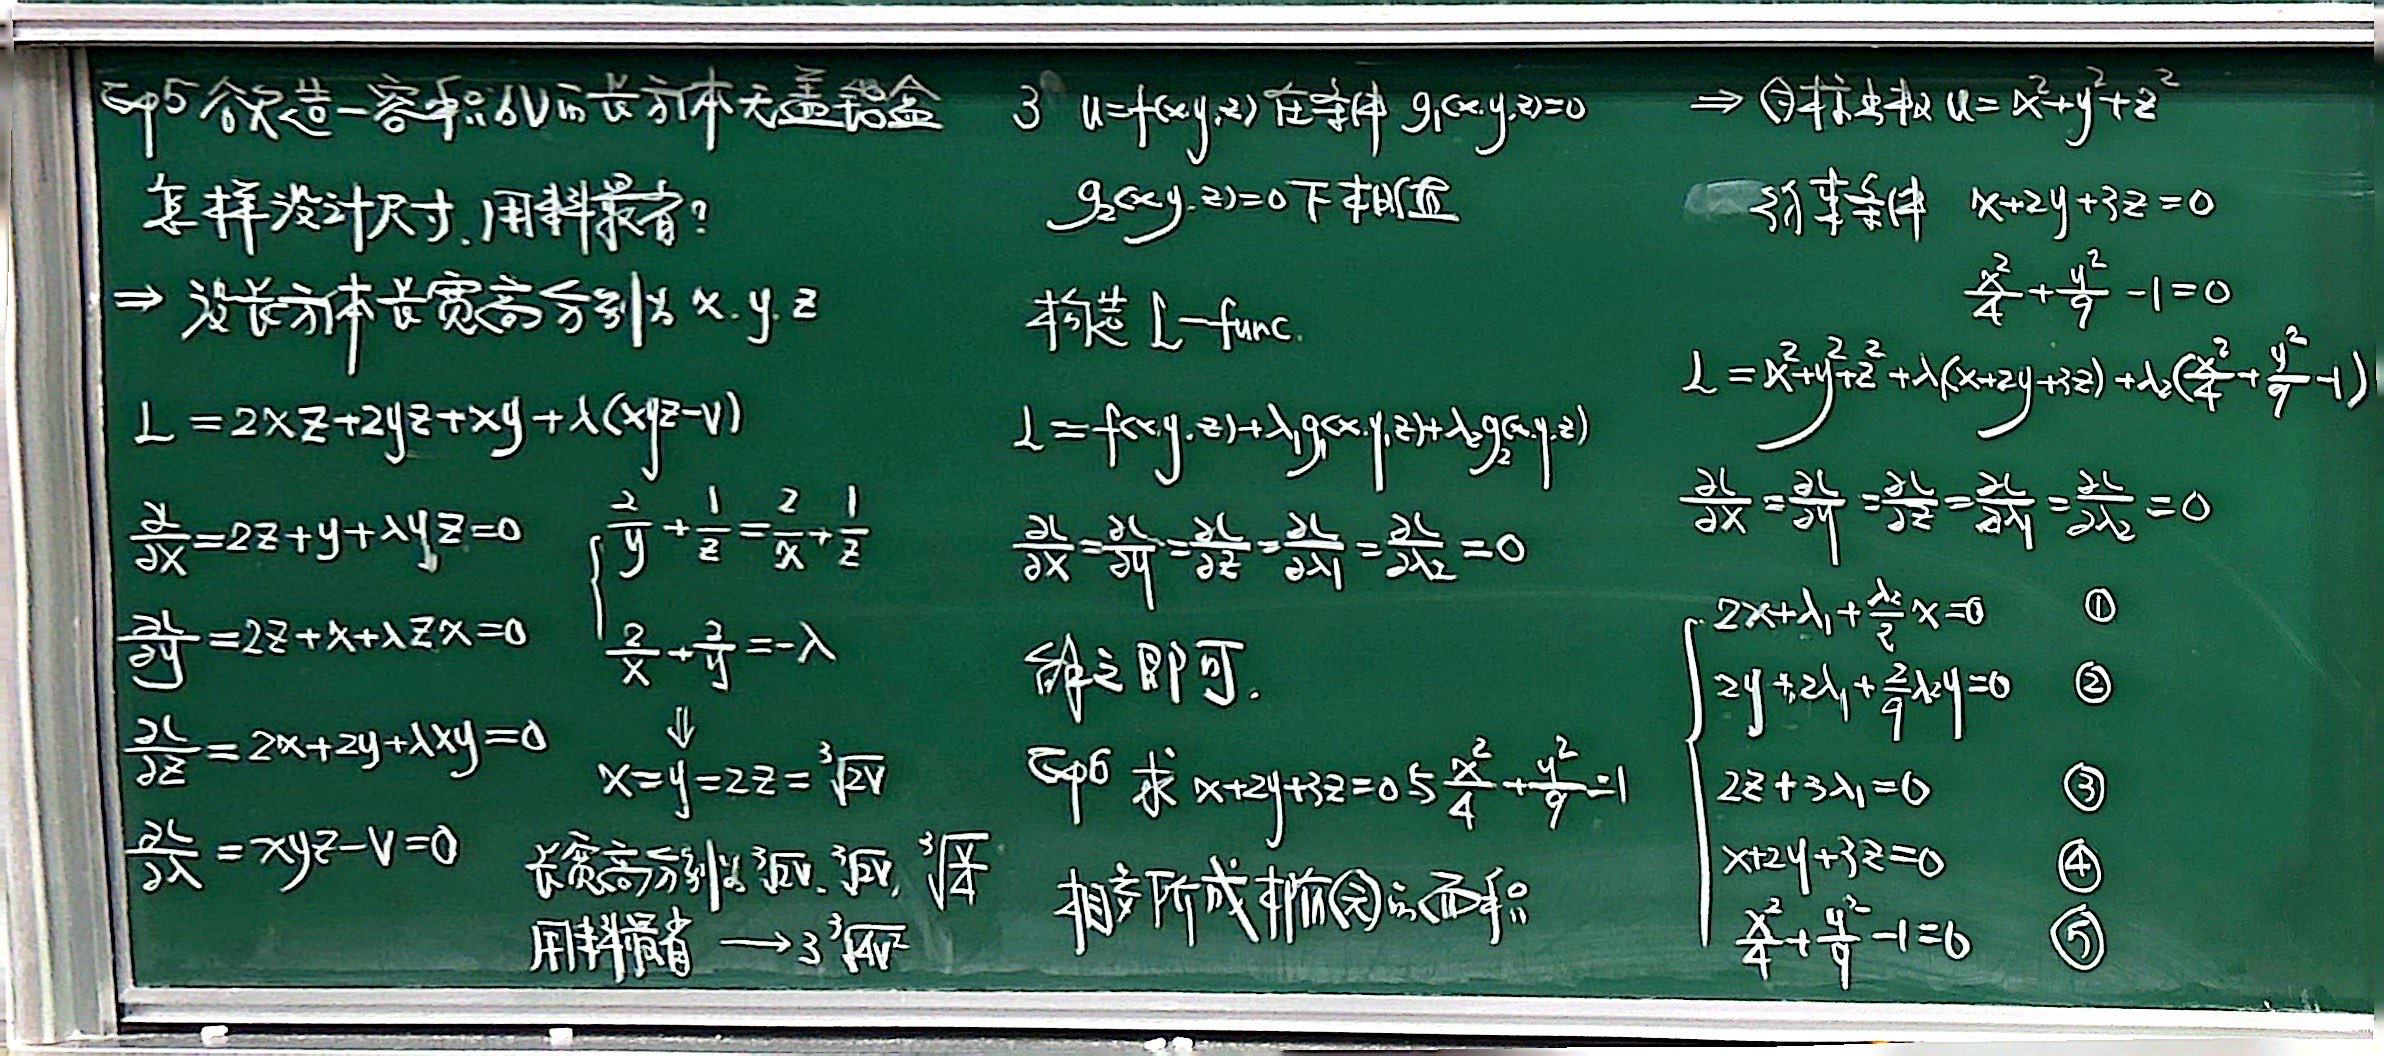 Eg5 欲造一容积为V的长方体无盖铝盒
怎样设计尺寸,用料最省?
⇒ 设长方体长宽高分别为 x.y.z
L=2xz+2yz+xy+λ(xyz-V)
∂L/∂x=2z+y+λyz=0
∂L/∂y=2z+x+λzx=0
∂L/∂z=2x+2y+λxy=0
∂L/∂λ=xyz-V=0
{ 2/y+1/z=2/x+1/z
2/x+2/y=-λ
⇓
x=y=2z=∛2V
长宽高分别为∛2V、∛2V,∛(V/4)
用料最省 ⟶3∛4V²
3 u=f(x,y,z)在条件 g₁(x.y,z)=0
g₂(x.y.z)=0下极值
构造 L-func.
L=f(x.y.z)+λ₁g₁(x.y,z)+λ₂g₂(x.y.z)
∂L/∂x=∂L/∂y=∂L/∂z=∂L/∂λ₁=∂L/∂λ₂=0
解之即可.
Eg6 求 x+2y+3z=0与x²/4+y²/9=1
相交所成椭圆的面积
⇒ 目标函数 u=x²+y²+z²
约束条件 x+2y+3z=0
x²/4+y²/9-1=0
L=x²+y²+z²+λ₁(x+2y+3z)+λ₂(x²/4+y²/9-1)
∂L/∂x=∂L/∂y=∂L/∂z=∂L/∂λ₁=∂L/∂λ₂=0
{ 2x+λ₁+λ₂/2 x=0 ①
2y+2λ₁+2/9 λ₂y=0 ②
2z+3λ₁=0 ③
x+2y+3z=0 ④
x²/4+y²/9-1=0 ⑤